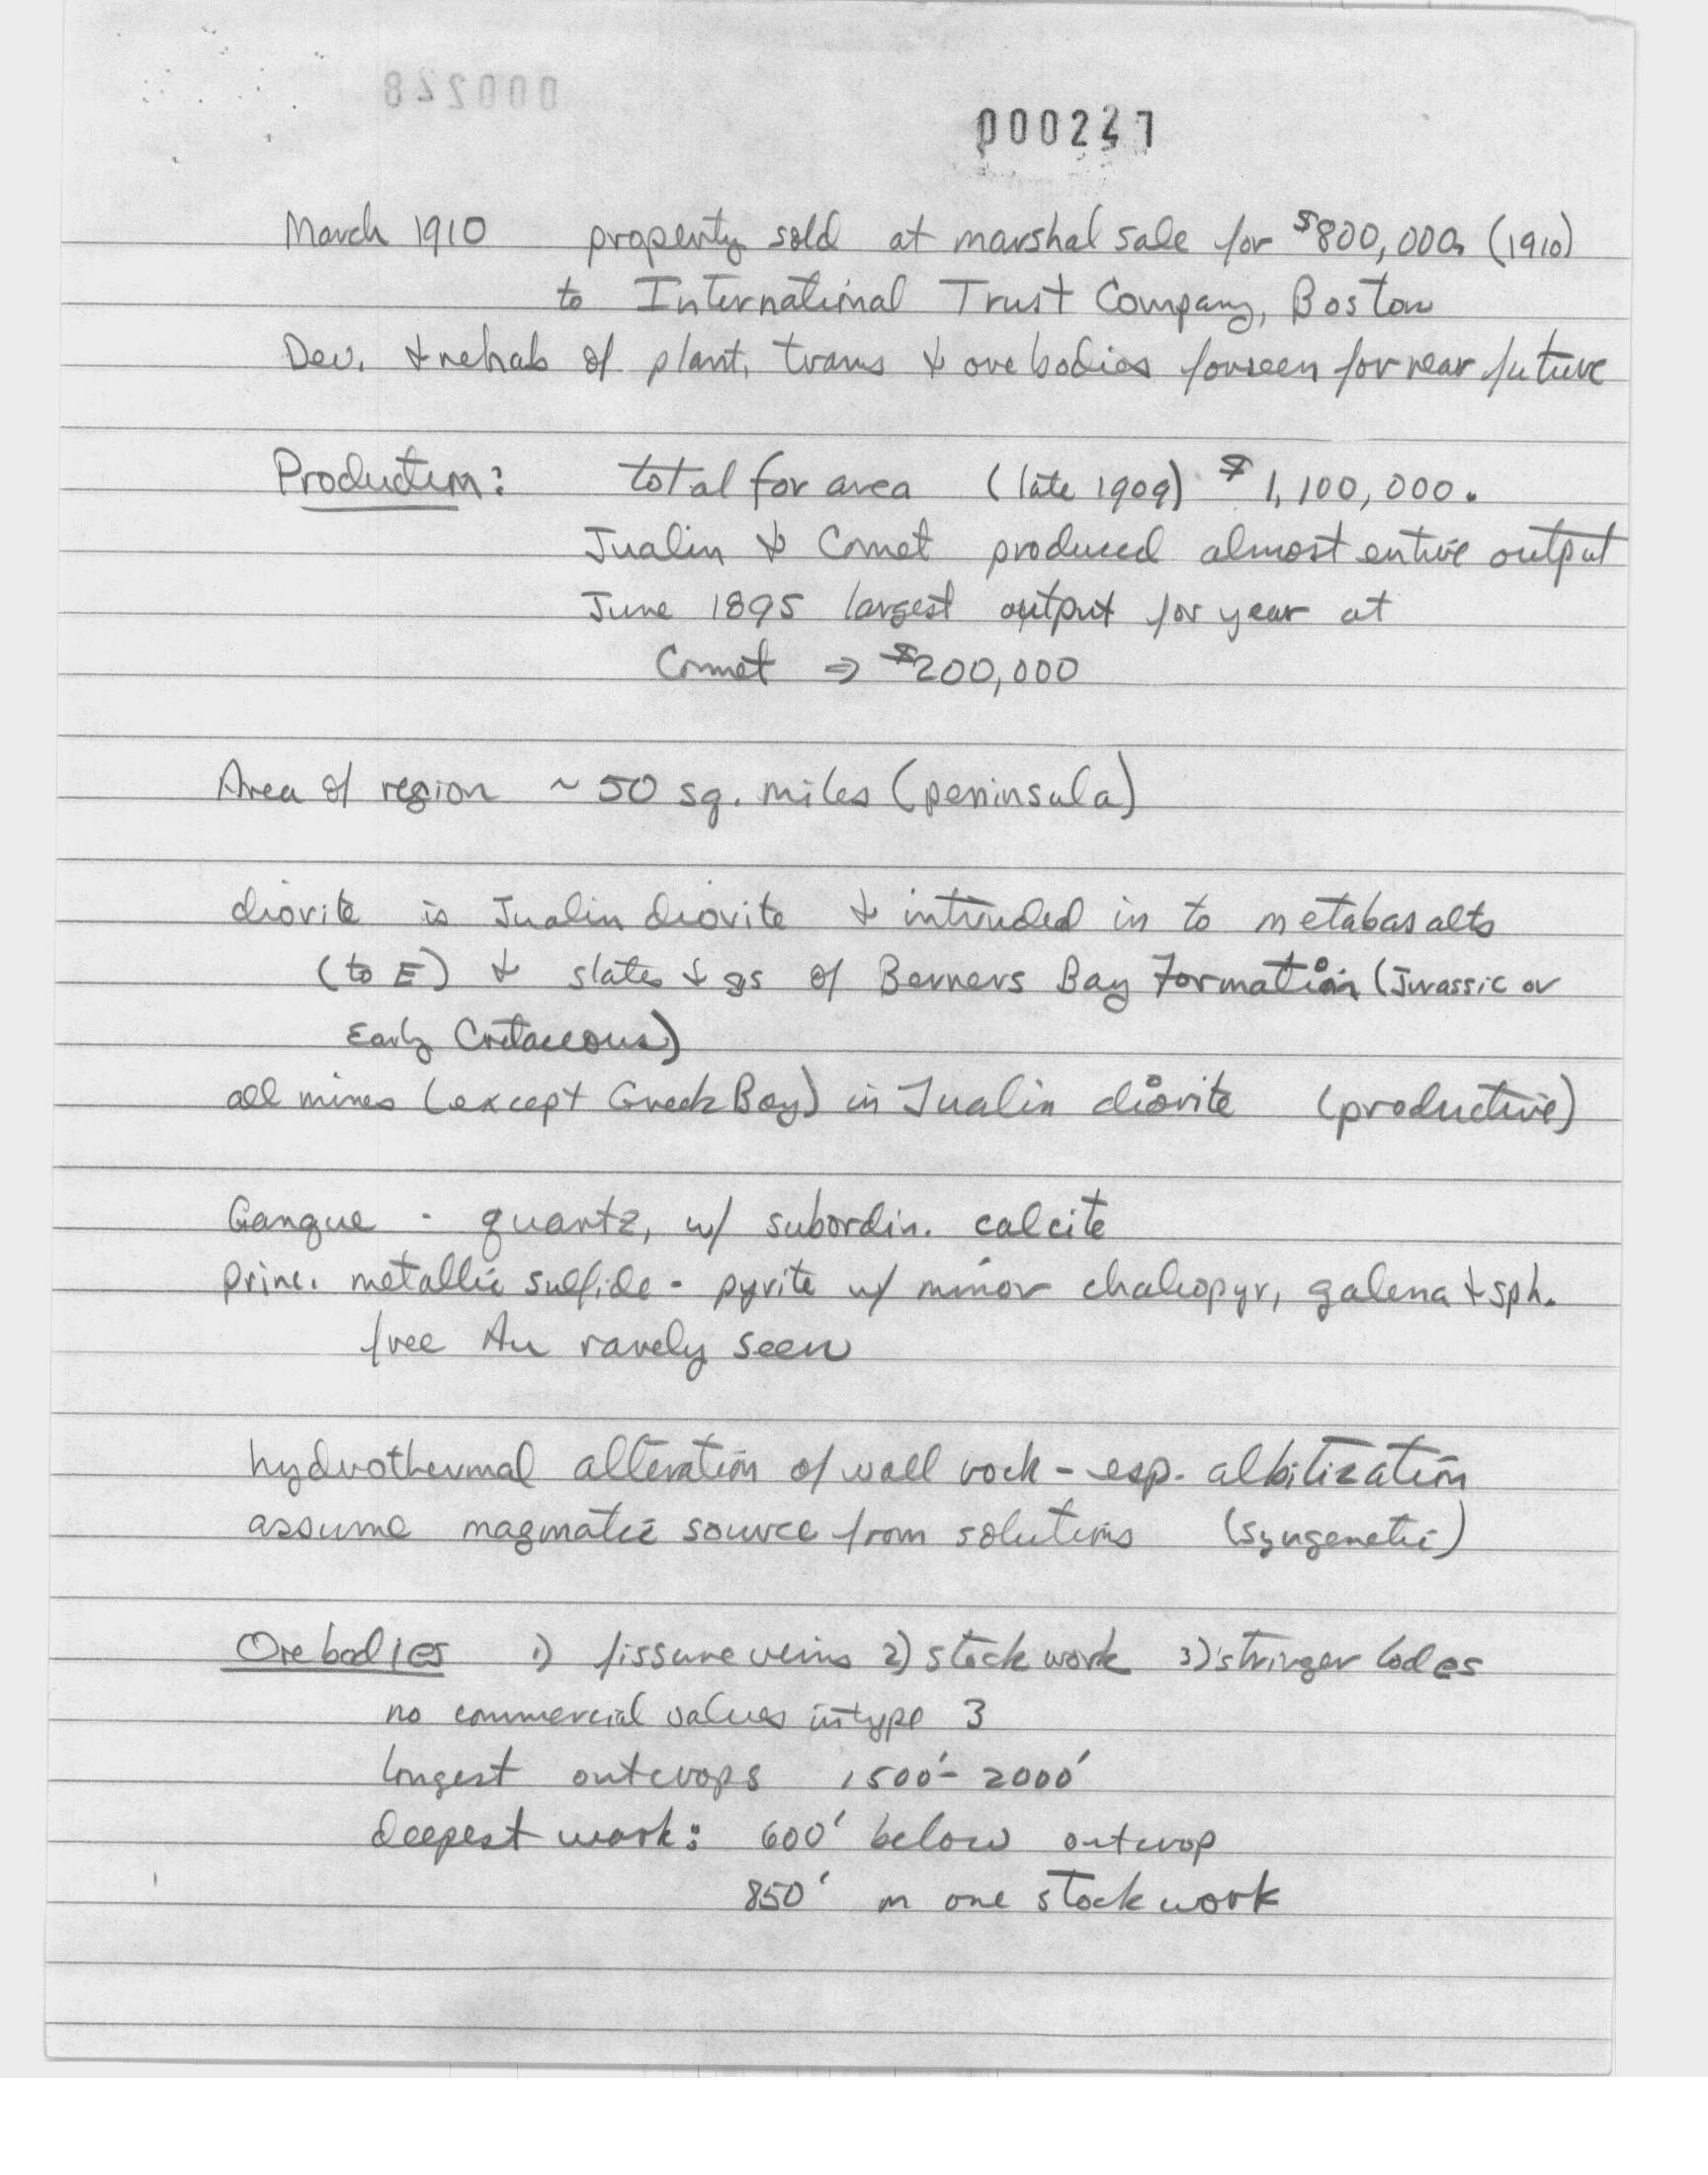 000227
March 1910 property sold at marshal sale for $800,000. (1910)
to International Trust Company, Boston
Dev. & rehab of plant, trams & orebodies forseen for near future
Production: total for area (late 1909) $1,100,000.
Jualin & Comet produced almost entire output
June 1895 largest output for year at
Comet ⇒ $200,000
Area of region ~50 sq. miles (peninsula)
diorite is Jualin diorite & intruded in to metabasalts
(to E) & slates & gs of Berners Bay Formation (Jurassic or
Early Cretaceous)
all mines (except Greek Boy) in Jualin diorite (productive)
Gangue - quartz, w/ subordin. calcite
princ. metallic sulfide - pyrite w/ minor chalcopyr, galena & sph.
free Au rarely seen
hydrothermal alteration of wall rock - esp. albitization
assume magmatic source from solutions (syngenetic)
Ore bodies 1) fissure veins 2) stock work 3) stringer lodes
no commercial values in type 3
longest outcrops 1500'- 2000'
deepest work: 600' below outcrop
850' in one stock work